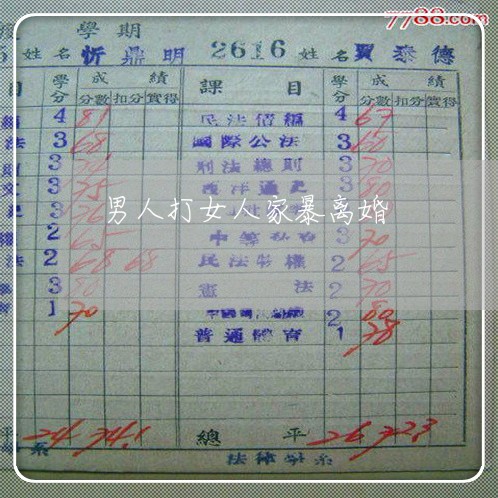 7788.com
學期
姓名 忻鼎明 2616 姓名 賈泰德
目 學分 成績 課目 學分 成績
分數 扣分 實得 分數 扣分 實得
4 81 民法債編 4 67
法 3 68 國際公法 3 60
3 刑法總則 3 70
3 75 西洋通史 3 80
男人打女人家暴离婚
2 65 3 70
法 2 68 68 民法物權 2 65
3 80 憲法 2 70
1 70 2 80
普通體育 1 78
平 24 74.1 總平 26 72.3
系 法律學系